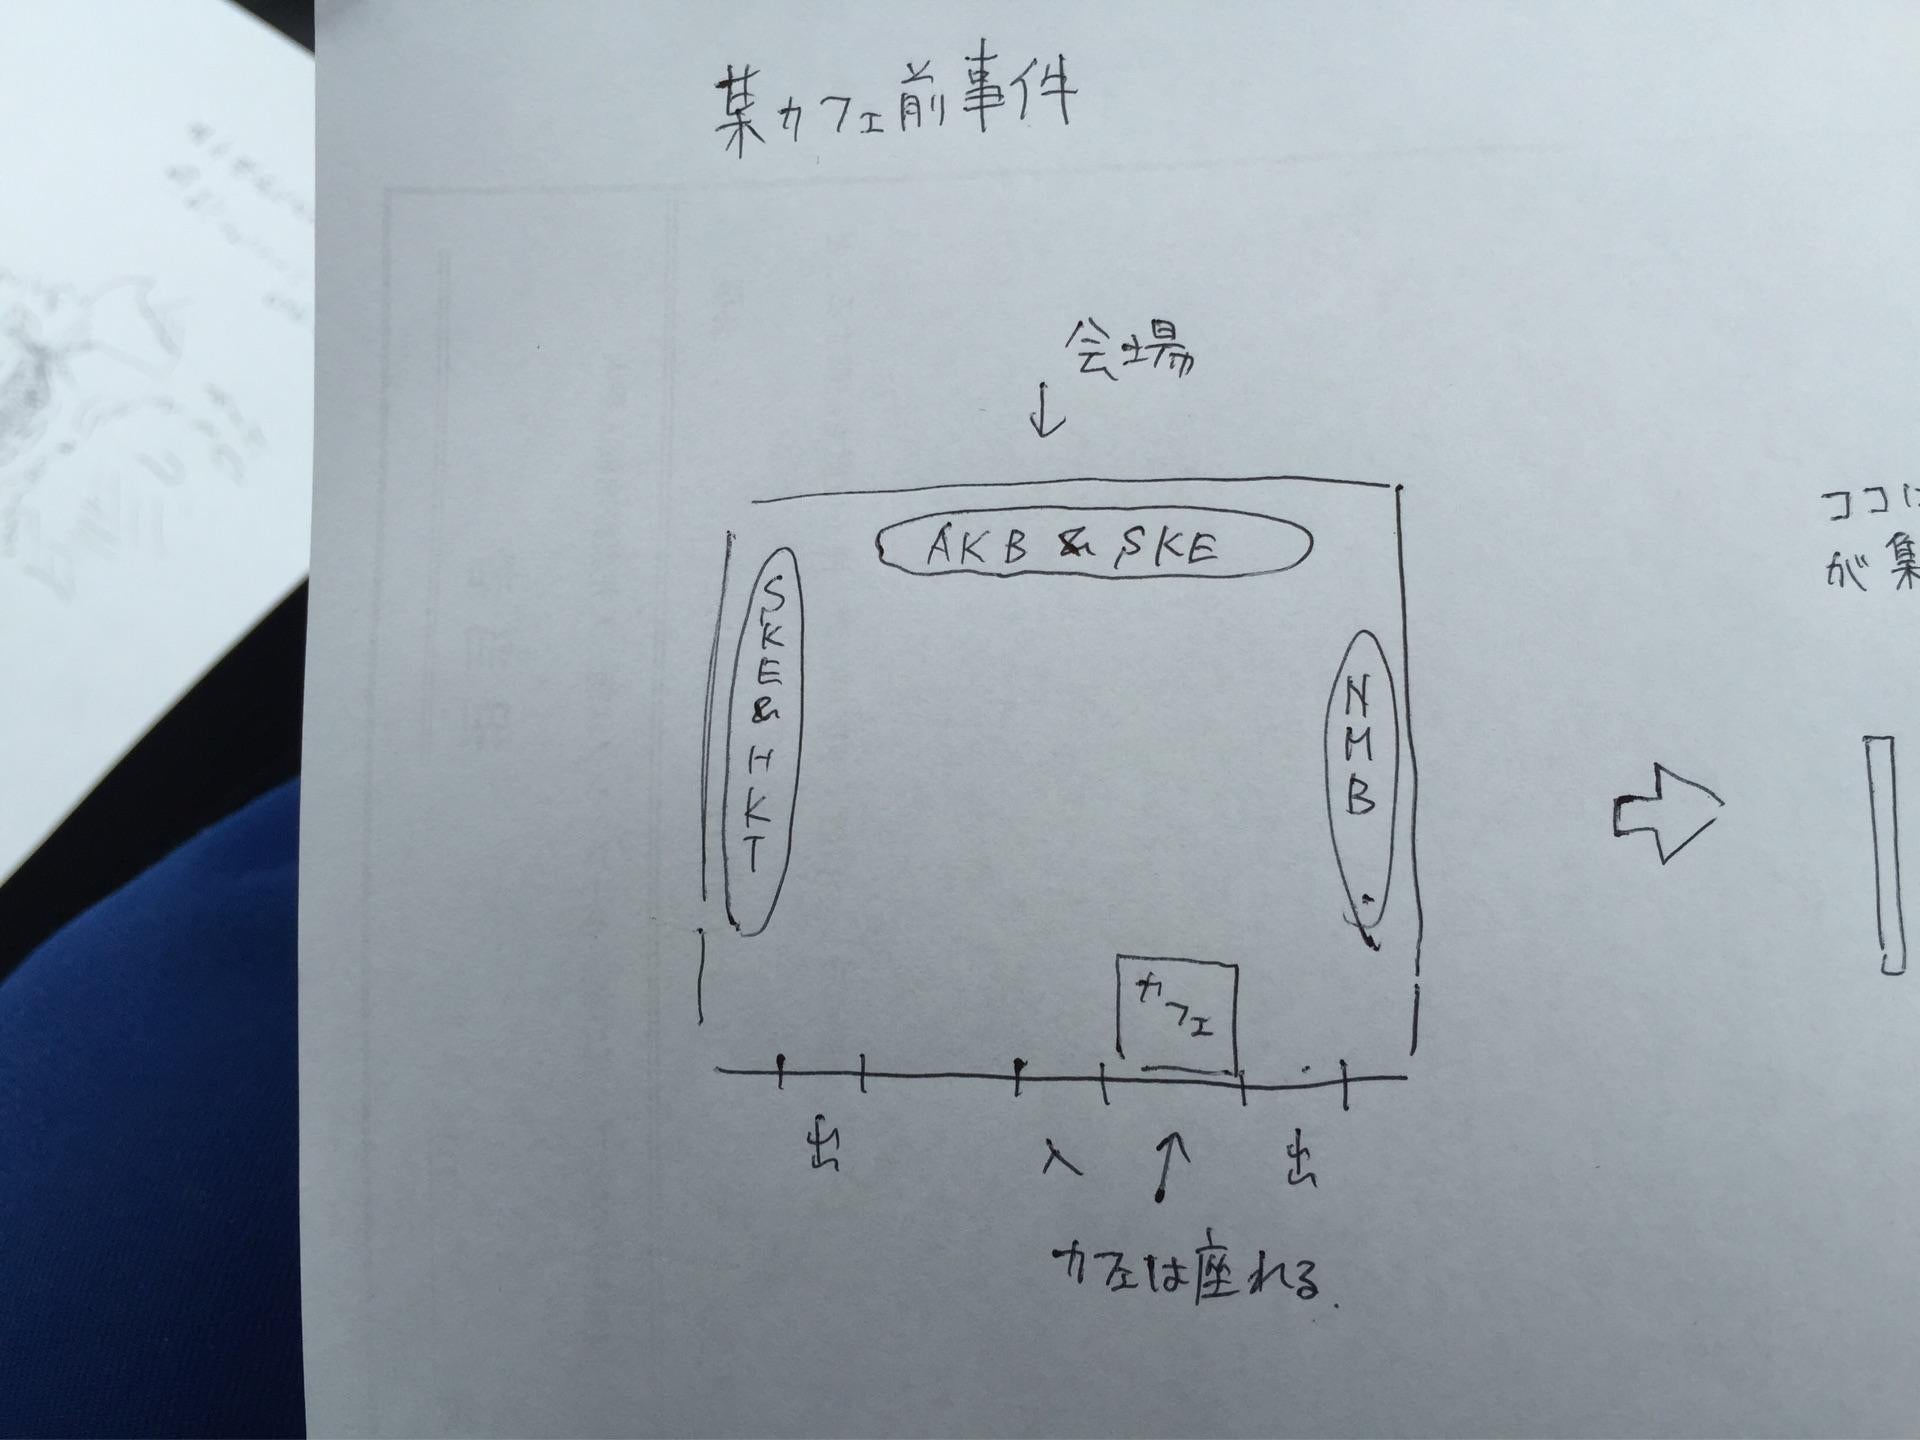 某カフェ前事件
会場
AKB & SKE
SKE&HKT
NMB
ココは
が集
カフェ
出
入
出
カフェは座れる.